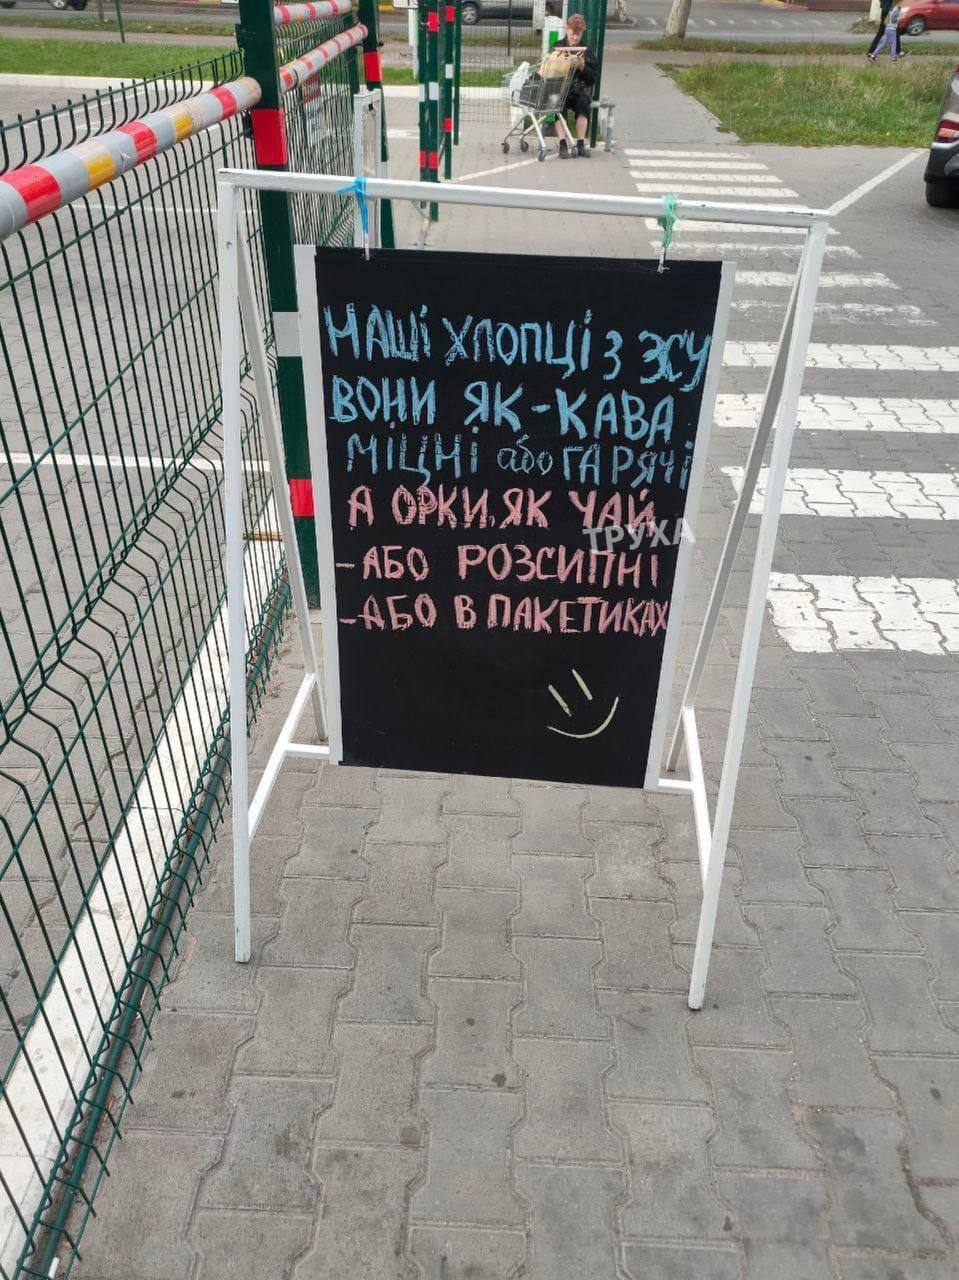 НАШІ ХЛОПЦІ З ЗСУ
ВОНИ ЯК-КАВА
МІЦНІ або ГАРЯЧІ
А ОРКИ, ЯК ЧАЙ
-АБО РОЗСИПНІ
-АБО В ПАКЕТИКАХ
ТРУХА